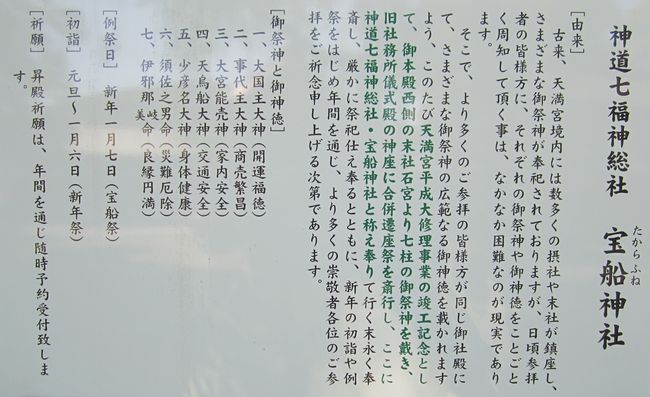 神道七福神総社　宝船神社
たから　ふね
［由来］
　古来、天満宮境内には数多くの摂社や末社が鎮座し、
さまざまな御祭神が奉祀されておりますが、日頃参拝
者の皆様方に、それぞれの御祭神や御神徳をことごと
く周知して頂く事は、なかなか困難なのが現実であり
ます。
　そこで、より多くのご参拝の皆様方が同じ御社殿に
て、さまざまな御祭神の広範なる御神徳を戴かれます
よう、このたび天満宮平成大修理事業の竣工記念とし
て、御本殿西側の末社石宮より七柱の御祭神を戴き、
旧社務所儀式殿の神座に合併遷座祭を斎行し、ここに
神道七福神総社・宝船神社と称え奉りて行く末永く奉
斎し、厳かに祭祀仕え奉るとともに、新年の初詣や例
祭をはじめ年間を通じ、より多くの崇敬者各位のご参
拝をご祈念申し上げる次第であります。
［御祭神と御神徳］
一、大国主大神（開運福徳）
二、事代主大神（商売繁昌）
三、大宮能売神（家内安全）
四、天鳥船大神（交通安全）
五、少彦名大神（身体健康）
六、須佐之男命（災難厄除）
七、伊邪那岐美命（良縁円満）
［例祭日］　新年一月七日（宝船祭）
［初詣］　元旦～一月六日（新年祭）
［祈願］　昇殿祈願は、年間を通じ随時予約受付致しま
す。